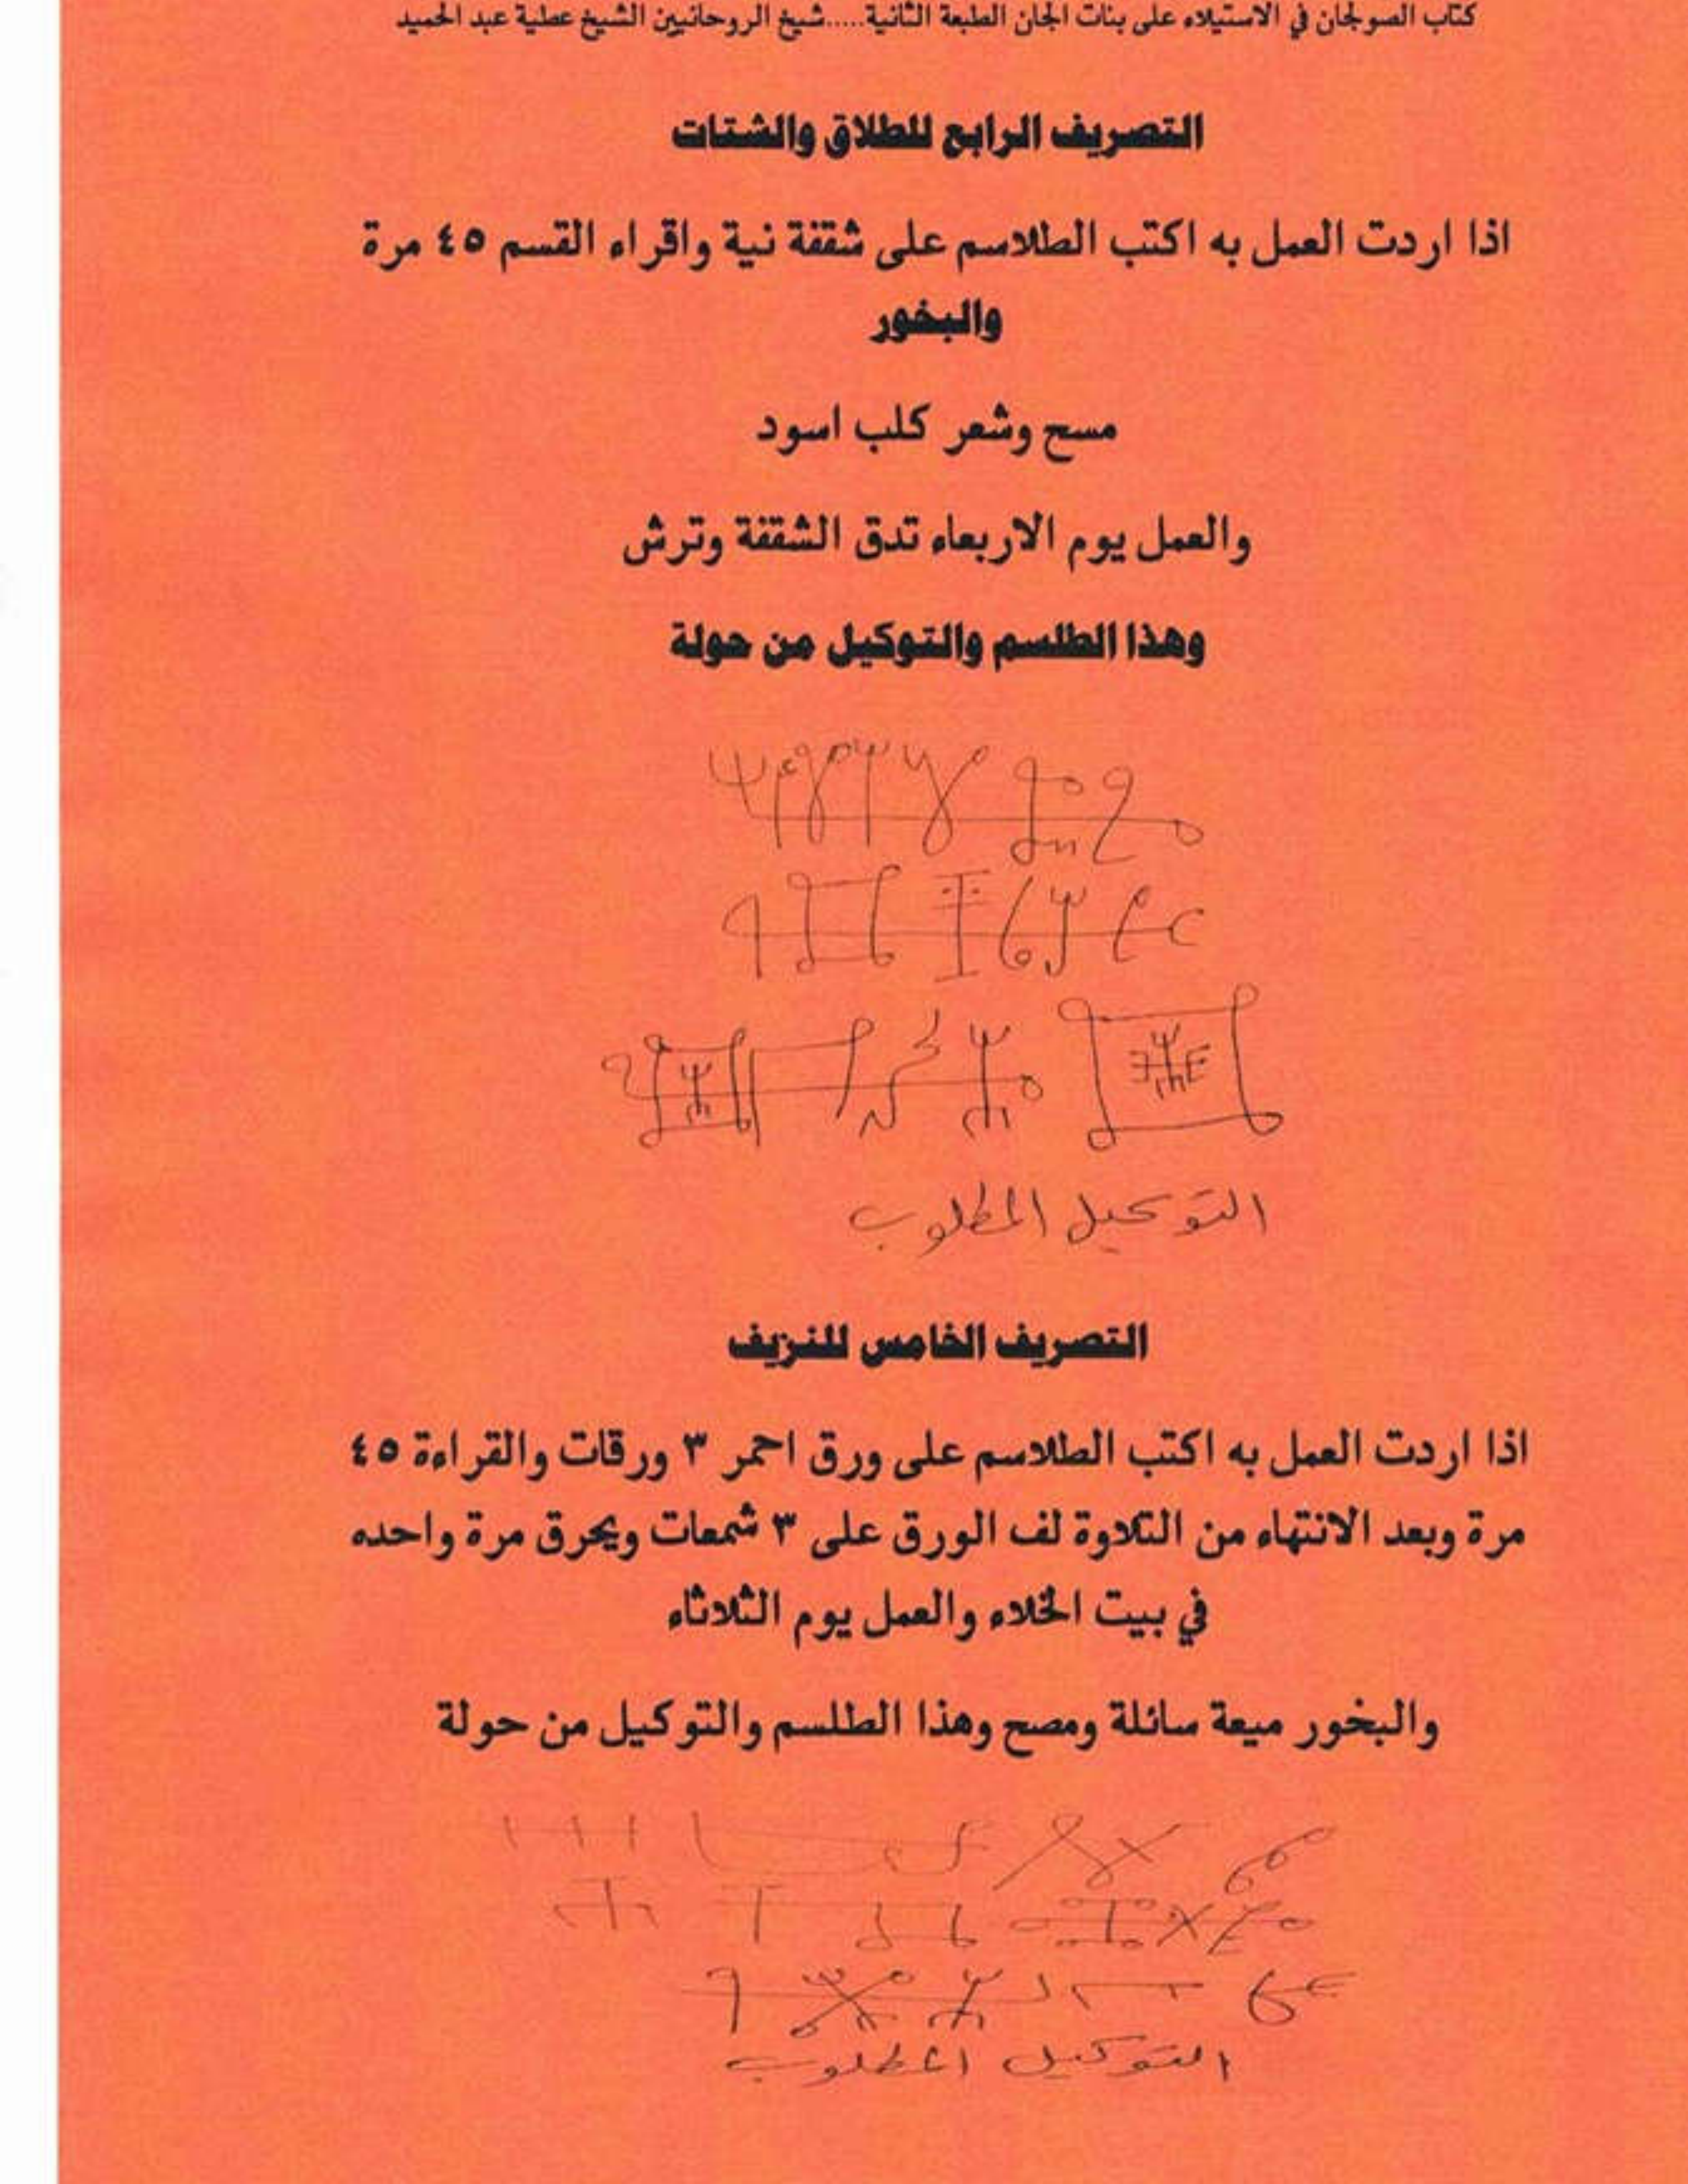 كتاب الصولجان في الاستيلاء على بنات الجان الطبعة الثانية.....شيخ الروحانيين الشيخ عطية عبد الحميد
التصريف الرابع للطلاق والشتات
اذا اردت العمل به اكتب الطلاسم على شقفة نية واقراء القسم ٤٥ مرة
والبخور
مسح وشعر كلب اسود
والعمل يوم الاربعاء تدق الشقفة وترش
وهذا الطلسم والتوكيل من حولة
التوكيل المطلوب
التصريف الخامس للنزيف
اذا اردت العمل به اكتب الطلاسم على ورق احمر ٣ ورقات والقراءة ٤٥
مرة وبعد الانتهاء من التلاوة لف الورق على ٣ شمعات ويحرق مرة واحده
في بيت الخلاء والعمل يوم الثلاثاء
والبخور ميعة سائلة ومصح وهذا الطلسم والتوكيل من حولة
التوكيل المطلوب